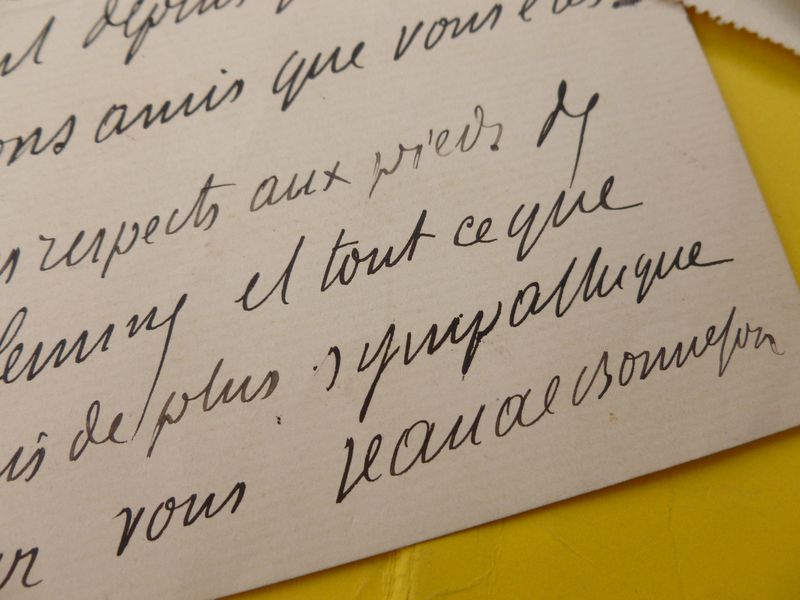 depuis
ons amis que vous êtes
respects aux pieds de
et tout ce que
de plus sympathique
vous Jean de Bonnefon